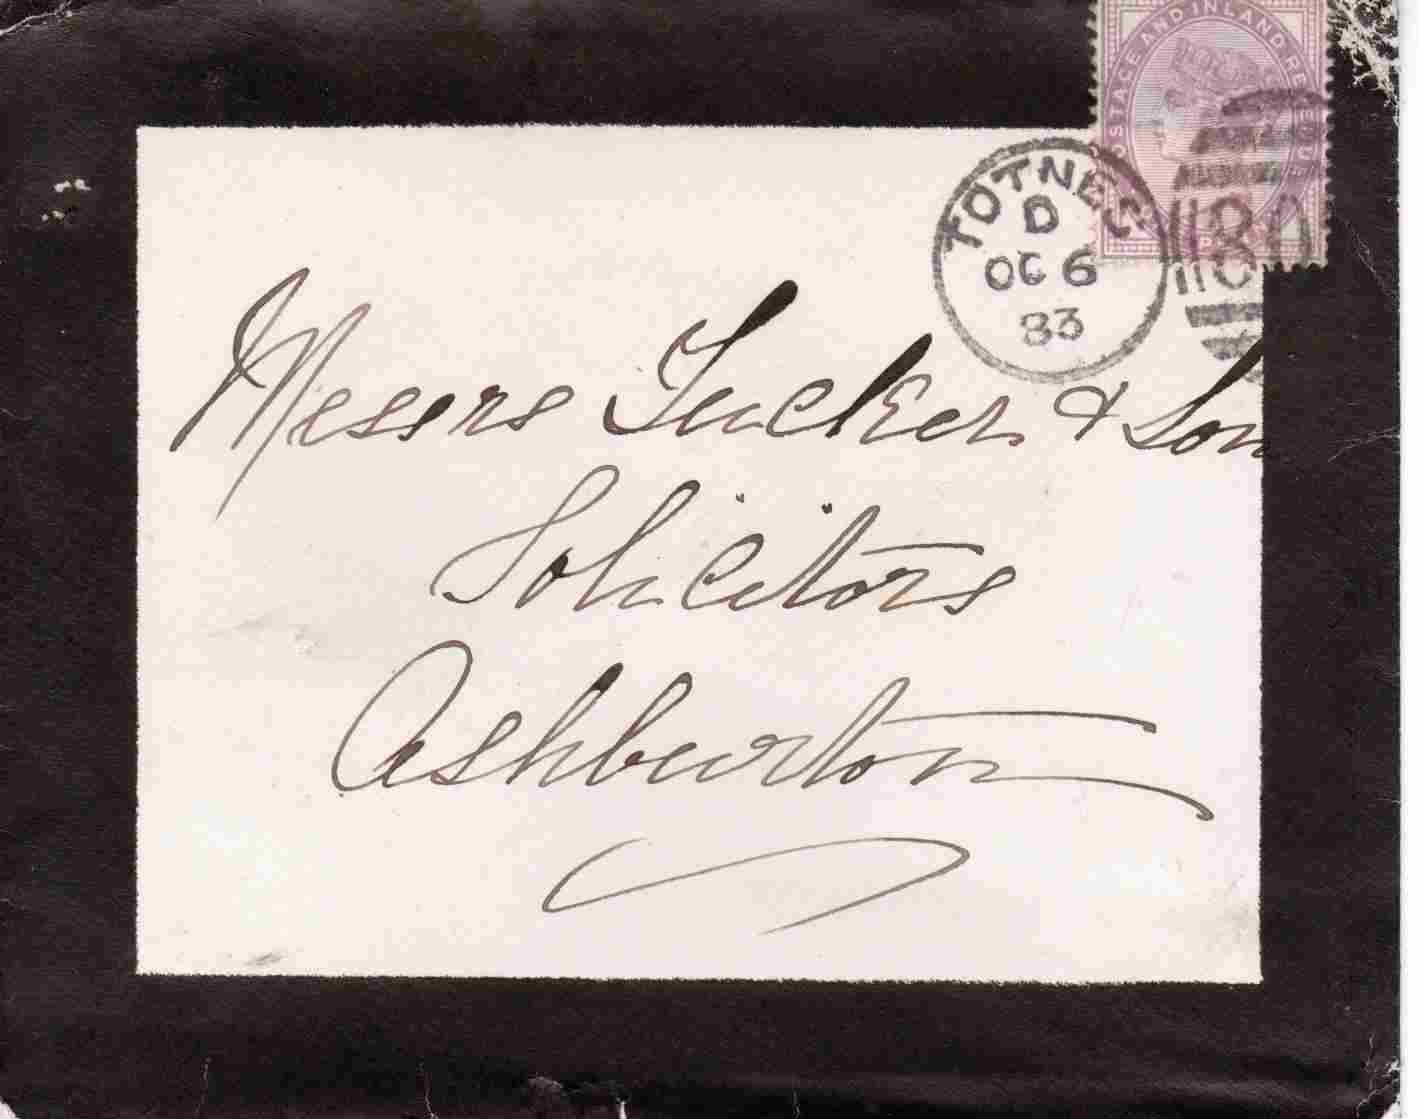 POSTAGE AND INLAND REVENUE
TOTNES
D
OC 6
83
Messrs Tucker & Son
Solicitors
Ashburton